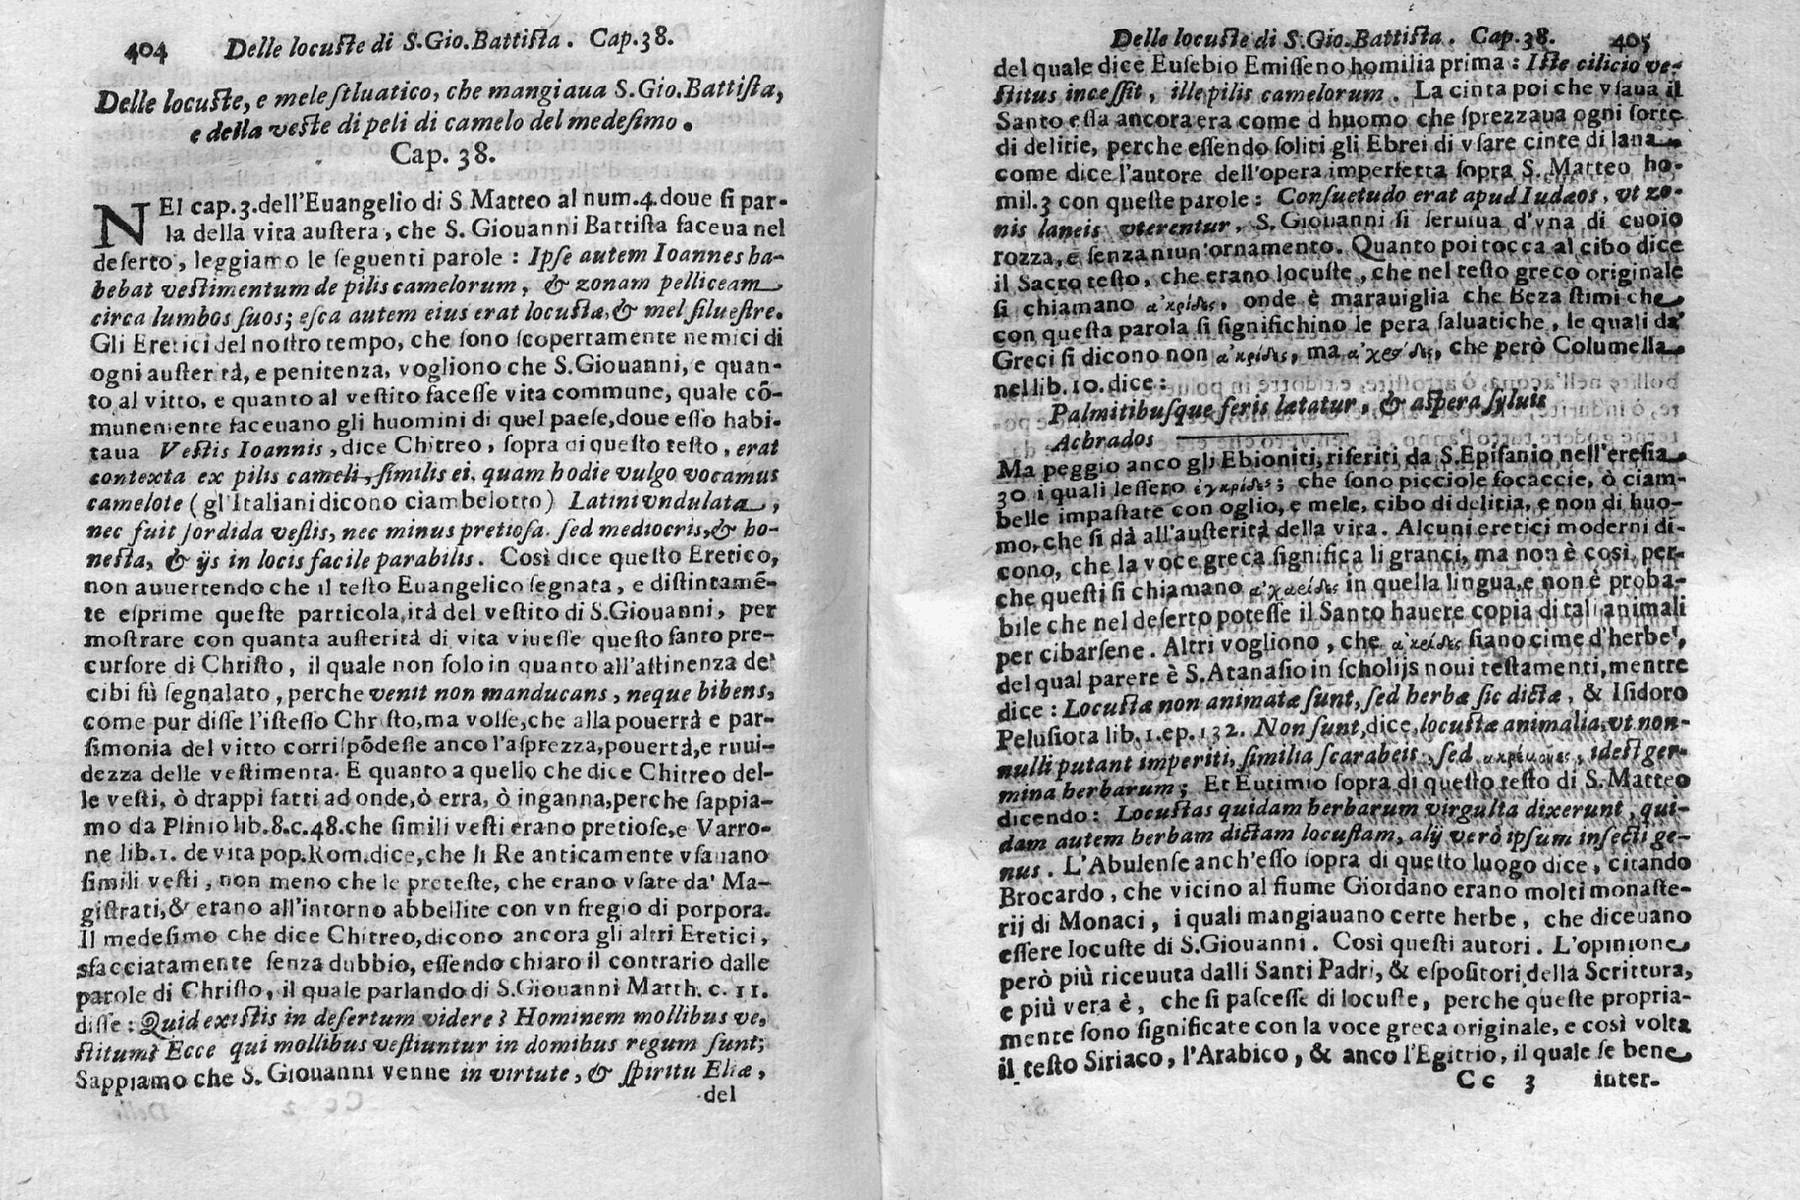 404 Delle locuſte di S.Gio.Battiſta. Cap.38.
Delle locuſte, e mele ſiluatico, che mangiaua S.Gio.Battiſta,
e della veſte di peli di camelo del medeſimo.
Cap. 38.
NEl cap.3.dell'Euangelio di S.Matteo al num.4.doue ſi par-
la della vita auſtera, che S. Giouanni Battiſta faceua nel
deſerto, leggiamo le ſeguenti parole: Ipſe autem Ioannes ha-
bebat veſtimentum de pilis camelorum, & zonam pelliceam
circa lumbos ſuos; eſca autem eius erat locuſtæ, & mel ſilueſtre.
Gli Eretici del noſtro tempo, che ſono ſcopertamente nemici di
ogni auſterità, e penitenza, vogliono che S.Giouanni, e quan-
to al vitto, e quanto al veſtito faceſſe vita commune, quale cō-
munemente faceuano gli huomini di quel paeſe, doue eſſo habi-
taua Veſtis Ioannis, dice Chitreo, ſopra di queſto teſto, erat
contexta ex pilis cameli, ſimilis ei, quam hodie vulgo vocamus
camelote (gl'Italiani dicono ciambelotto) Latini vndulata,
nec fuit ſordida veſtis, nec minus pretioſa, ſed mediocris, & ho-
neſta, & ijs in locis facile parabilis. Così dice queſto Eretico,
non auuertendo che il teſto Euangelico ſegnata, e diſtintamē-
te eſprime queſte particolarità del veſtito di S.Giouanni, per
moſtrare con quanta auſterità di vita viueſſe queſto ſanto pre-
curſore di Chriſto, il quale non ſolo in quanto all'aſtinenza de'
cibi fù ſegnalato, perche venit non manducans, neque bibens,
come pur diſſe l'iſteſſo Chriſto, ma volſe, che alla pouertà e par-
ſimonia del vitto corriſpōdeſſe anco l'aſprezza, pouertà, e ruui-
dezza delle veſtimenta. E quanto a quello che dice Chitreo del-
le veſti, ò drappi fatti ad onde, ò erra, ò inganna, perche ſappia-
mo da Plinio lib.8.c.48.che ſimili veſti erano pretioſe, e Varro-
ne lib.1. de vita pop.Rom.dice, che li Re anticamente vſauano
ſimili veſti, non meno che le preteſte, che erano vſate da' Ma-
giſtrati, & erano all'intorno abbellite con vn fregio di porpora.
Il medeſimo che dice Chitreo, dicono ancora gli altri Eretici,
sfacciatamente ſenza dubbio, eſſendo chiaro il contrario dalle
parole di Chriſto, il quale parlando di S.Giouanni Matth. c. 11.
diſſe: Quid exiſtis in deſertum videre? Hominem mollibus ve-
ſtitum? Ecce qui mollibus veſtiuntur in domibus regum ſunt;
Sappiamo che S. Giouanni venne in virtute, & ſpiritu Eliæ,
del
Delle locuſte di S.Gio.Battiſta. Cap.38. 405
del quale dice Euſebio Emiſſeno homilia prima: Iſte cilicio ve-
ſtitus inceſſit, ille pilis camelorum. La cinta poi che vſaua il
Santo eſſa ancora era come d huomo che ſprezzaua ogni ſorte
di delitie, perche eſſendo ſoliti gli Ebrei di vſare cinte di lana
come dice l'autore dell'opera imperfetta ſopra S. Matteo ho-
mil.3 con queſte parole: Conſuetudo erat apud Iudæos, vt zo-
nis laneis vterentur. S.Giouanni ſi ſeruiua d'vna di cuoio
rozza, e ſenza niun'ornamento. Quanto poi tocca al cibo dice
il Sacro teſto, che erano locuſte, che nel teſto greco originale
ſi chiamano ἀκρίδες, onde è marauiglia che Beza ſtimi che
con queſta parola ſi ſignifichino le pera ſaluatiche, le quali da'
Greci ſi dicono non ἀκρίδες, ma , che però Columella
nel lib.10.dice:
Palmitibuſque feris lætatur, & aſpera ſyluis
Achrados
Ma peggio anco gli Ebioniti, riferiti da S.Epifanio nell'ereſia
30 i quali leſſero ἐγκρίδες; che ſono picciole focaccie, ò ciam-
belle impaſtate con oglio, e mele, cibo di delitia, e non di huo-
mo, che ſi dà all'auſterità della vita. Alcuni eretici moderni di-
cono, che la voce greca ſignifica li granci, ma non è così, per-
che queſti ſi chiamano in quella lingua, e non è proba-
bile che nel deſerto poteſſe il Santo hauere copia di tali animali
per cibarſene. Altri vogliono, che ἀκρίδες ſiano cime d'herbe,
del qual parere è S.Atanaſio in ſcholijs noui teſtamenti, mentre
dice: Locuſtæ non animatæ ſunt, ſed herbæ ſic dictæ, & Iſidoro
Peluſiota lib.1.ep.132. Non ſunt, dice, locuſtæ animalia, vt non-
nulli putant imperiti, ſimilia ſcarabeis, ſed , ideſt ger-
mina herbarum; Et Eutimio ſopra di queſto teſto di S.Matteo
dicendo: Locuſtas quidam herbarum virgulta dixerunt, qui-
dam autem herbam dictam locuſtam, alij verò ipſum inſecti ge-
nus. L'Abulenſe anch'eſſo ſopra di queſto luogo dice, citando
Brocardo, che vicino al fiume Giordano erano molti monaſte-
rij di Monaci, i quali mangiauano certe herbe, che diceuano
eſſere locuſte di S.Giouanni. Così queſti autori. L'opinione
però più riceuuta dalli Santi Padri, & eſpoſitori della Scrittura,
e più vera è, che ſi paſceſſe di locuſte, perche queſte propria-
mente ſono ſignificate con la voce greca originale, e così volta
il teſto Siriaco, l'Arabico, & anco l'Egittio, il quale ſe bene
Cc 3 inter-